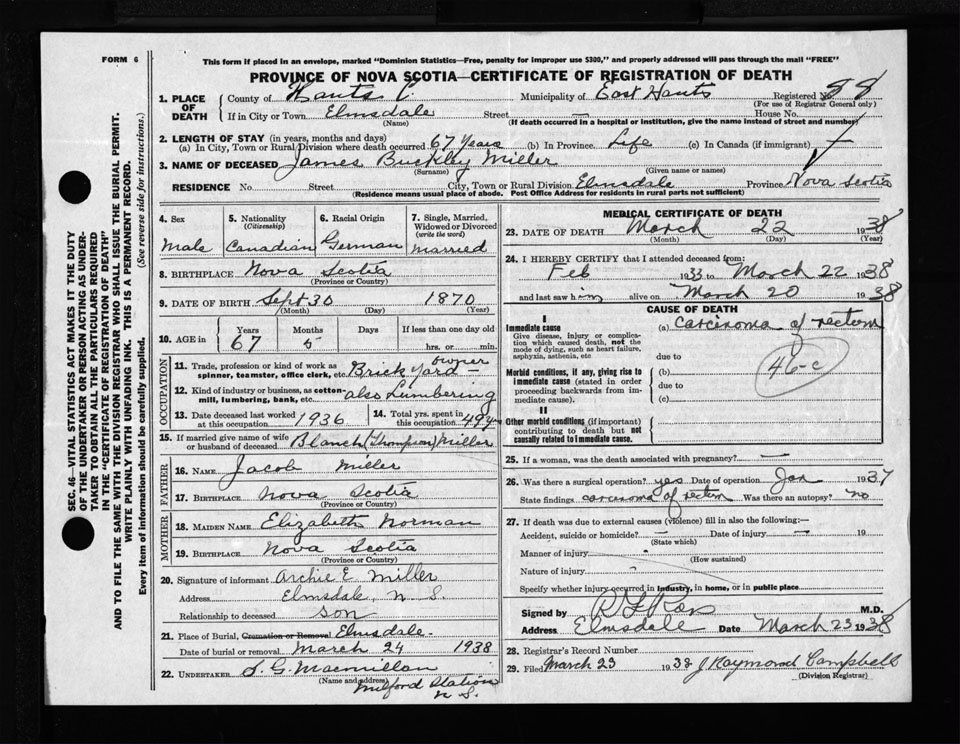 FORM 6
This form if placed in an envelope, marked "Dominion Statistics—Free, penalty for improper use $300," and properly addressed will pass through the mail "FREE"
PROVINCE OF NOVA SCOTIA—CERTIFICATE OF REGISTRATION OF DEATH
1. PLACE OF DEATH
County of Hants C. Municipality of East Hants Registered No. 88
(For use of Registrar General only)
If in City or Town Elmsdale Street — House No.
(Name) (If death occurred in a hospital or institution, give the name instead of street and number)
2. LENGTH OF STAY (in years, months and days)
(a) In City, Town or Rural Division where death occurred 67 Years (b) In Province Life (c) In Canada (if immigrant) —
3. NAME OF DECEASED James Buckley Miller
(Surname) (Given name or names)
RESIDENCE No. Street City, Town or Rural Division Elmsdale Province Nova Scotia
(Residence means usual place of abode. Post Office Address for residents in rural parts not sufficient)
SEC. 46—VITAL STATISTICS ACT MAKES IT THE DUTY
OF THE UNDERTAKER OR PERSON ACTING AS UNDER-
TAKER TO OBTAIN ALL THE PARTICULARS REQUIRED
IN THE "CERTIFICATE OF REGISTRATION OF DEATH"
AND TO FILE THE SAME WITH THE DIVISION REGISTRAR WHO SHALL ISSUE THE BURIAL PERMIT.
WRITE PLAINLY WITH UNFADING INK. THIS IS A PERMANENT RECORD.
Every item of information should be carefully supplied. (See reverse side for instructions.)
4. Sex 5. Nationality 6. Racial Origin 7. Single, Married, Widowed or Divorced
(Citizenship) (write the word)
Male Canadian German Married
8. BIRTHPLACE Nova Scotia
(Province or Country)
9. DATE OF BIRTH Sept 30 1870
(Month) (Day) (Year)
10. AGE in Years Months Days If less than one day old
67 5 hrs. or min.
OCCUPATION
11. Trade, profession or kind of work as spinner, teamster, office clerk, etc. Brick yard owner —
12. Kind of industry or business, as cotton-mill, lumbering, bank, etc. also Lumbering
13. Date deceased last worked at this occupation 1936 14. Total yrs. spent in this occupation 49 y
15. If married give name of wife or husband of deceased Blanch (Thompson) Miller
FATHER
16. NAME Jacob Miller
17. BIRTHPLACE Nova Scotia
(Province or Country)
MOTHER
18. MAIDEN NAME Elizabeth Norman
19. BIRTHPLACE Nova Scotia
(Province or Country)
20. Signature of informant Archie E. Miller
Address Elmsdale, N. S.
Relationship to deceased son
21. Place of Burial, Cremation or Removal Elmsdale-
Date of burial or removal March 24 1938
22. UNDERTAKER S. G. Macmillan
(Name and address) Milford Station
N. S.
MEDICAL CERTIFICATE OF DEATH
23. DATE OF DEATH March 22 1938
(Month) (Day) (Year)
24. I HEREBY CERTIFY that I attended deceased from:
Feb 1933 to March 22 1938
and last saw him alive on March 20 1938
CAUSE OF DEATH
I
Immediate cause (a) carcinoma of rectum
Give disease, injury or complication which caused death, not the mode of dying, such as heart failure, asphyxia, asthenia, etc
due to
46-c
Morbid conditions, if any, giving rise to immediate cause (stated in order proceeding backwards from immediate cause).
(b)
due to
(c)
II
Other morbid conditions (if important) contributing to death but not causally related to immediate cause.
25. If a woman, was the death associated with pregnancy? —
26. Was there a surgical operation? yes Date of operation Jan 1937
State findings carcinoma of rectum Was there an autopsy? no
27. If death was due to external causes (violence) fill in also the following:—
Accident, suicide or homicide? — Date of injury — 19
(State which)
Manner of injury
(How sustained)
Nature of injury
Specify whether injury occurred in industry, in home, or in public place
Signed by R L Ross M.D.
Address Elmsdale Date March 23 1938
28. Registrar's Record Number
29. Filed March 23 1938 J Raymond Campbell
(Division Registrar)